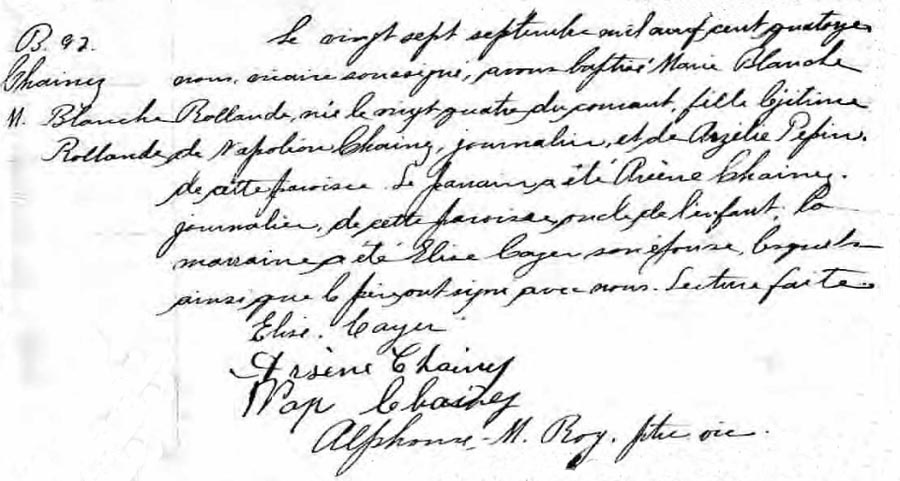 B. 92.
Chainey
M. Blanche
Rollande
Le vingt sept septembre mil neuf cent quatorze
nous, vicaire soussigné, avons baptisé Marie Blanche
Rollande, née le vingt quatre du courant, fille légitime
de Napoléon Chainey, journalier, et de Anzélie Pépin,
de cette paroisse. Le parrain a été Arsène Chainey,
journalier, de cette paroisse, oncle de l'enfant. La
marraine a été Elise Cayer son épouse, lesquels
ainsi que le père ont signé avec nous. Lecture faite.
Elise. Cayer
Arsène Chainey
Nap Chainey
Alphonse-M. Roy. ptre vic.